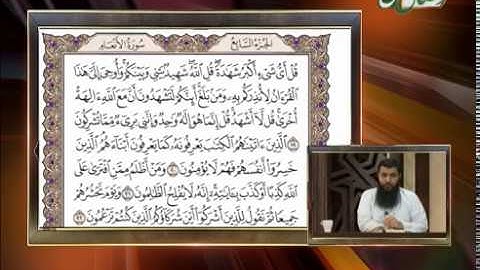 الجزء السابع
سورة الأنعام
قُلْ أَىُّ شَىْءٍ أَكْبَرُ شَهَٰدَةً قُلِ ٱللَّهُ شَهِيدٌۢ بَيْنِى وَبَيْنَكُمْ وَأُوحِىَ إِلَىَّ هَٰذَا
ٱلْقُرْءَانُ لِأُنذِرَكُم بِهِۦ وَمَنۢ بَلَغَ أَئِنَّكُمْ لَتَشْهَدُونَ أَنَّ مَعَ ٱللَّهِ ءَالِهَةً
أُخْرَىٰ قُل لَّآ أَشْهَدُ قُلْ إِنَّمَا هُوَ إِلَٰهٌ وَٰحِدٌ وَإِنَّنِى بَرِىٓءٌ مِّمَّا تُشْرِكُونَ
١٩ ٱلَّذِينَ ءَاتَيْنَٰهُمُ ٱلْكِتَٰبَ يَعْرِفُونَهُۥ كَمَا يَعْرِفُونَ أَبْنَآءَهُمُ ٱلَّذِينَ
خَسِرُوٓا۟ أَنفُسَهُمْ فَهُمْ لَا يُؤْمِنُونَ ٢٠ وَمَنْ أَظْلَمُ مِمَّنِ ٱفْتَرَىٰ عَلَى
ٱللَّهِ كَذِبًا أَوْ كَذَّبَ بِـَٔايَٰتِهِۦٓ إِنَّهُۥ لَا يُفْلِحُ ٱلظَّٰلِمُونَ ٢١ وَيَوْمَ نَحْشُرُهُمْ
جَمِيعًا ثُمَّ نَقُولُ لِلَّذِينَ أَشْرَكُوٓا۟ أَيْنَ شُرَكَآؤُكُمُ ٱلَّذِينَ كُنتُمْ تَزْعُمُونَ ٢٢